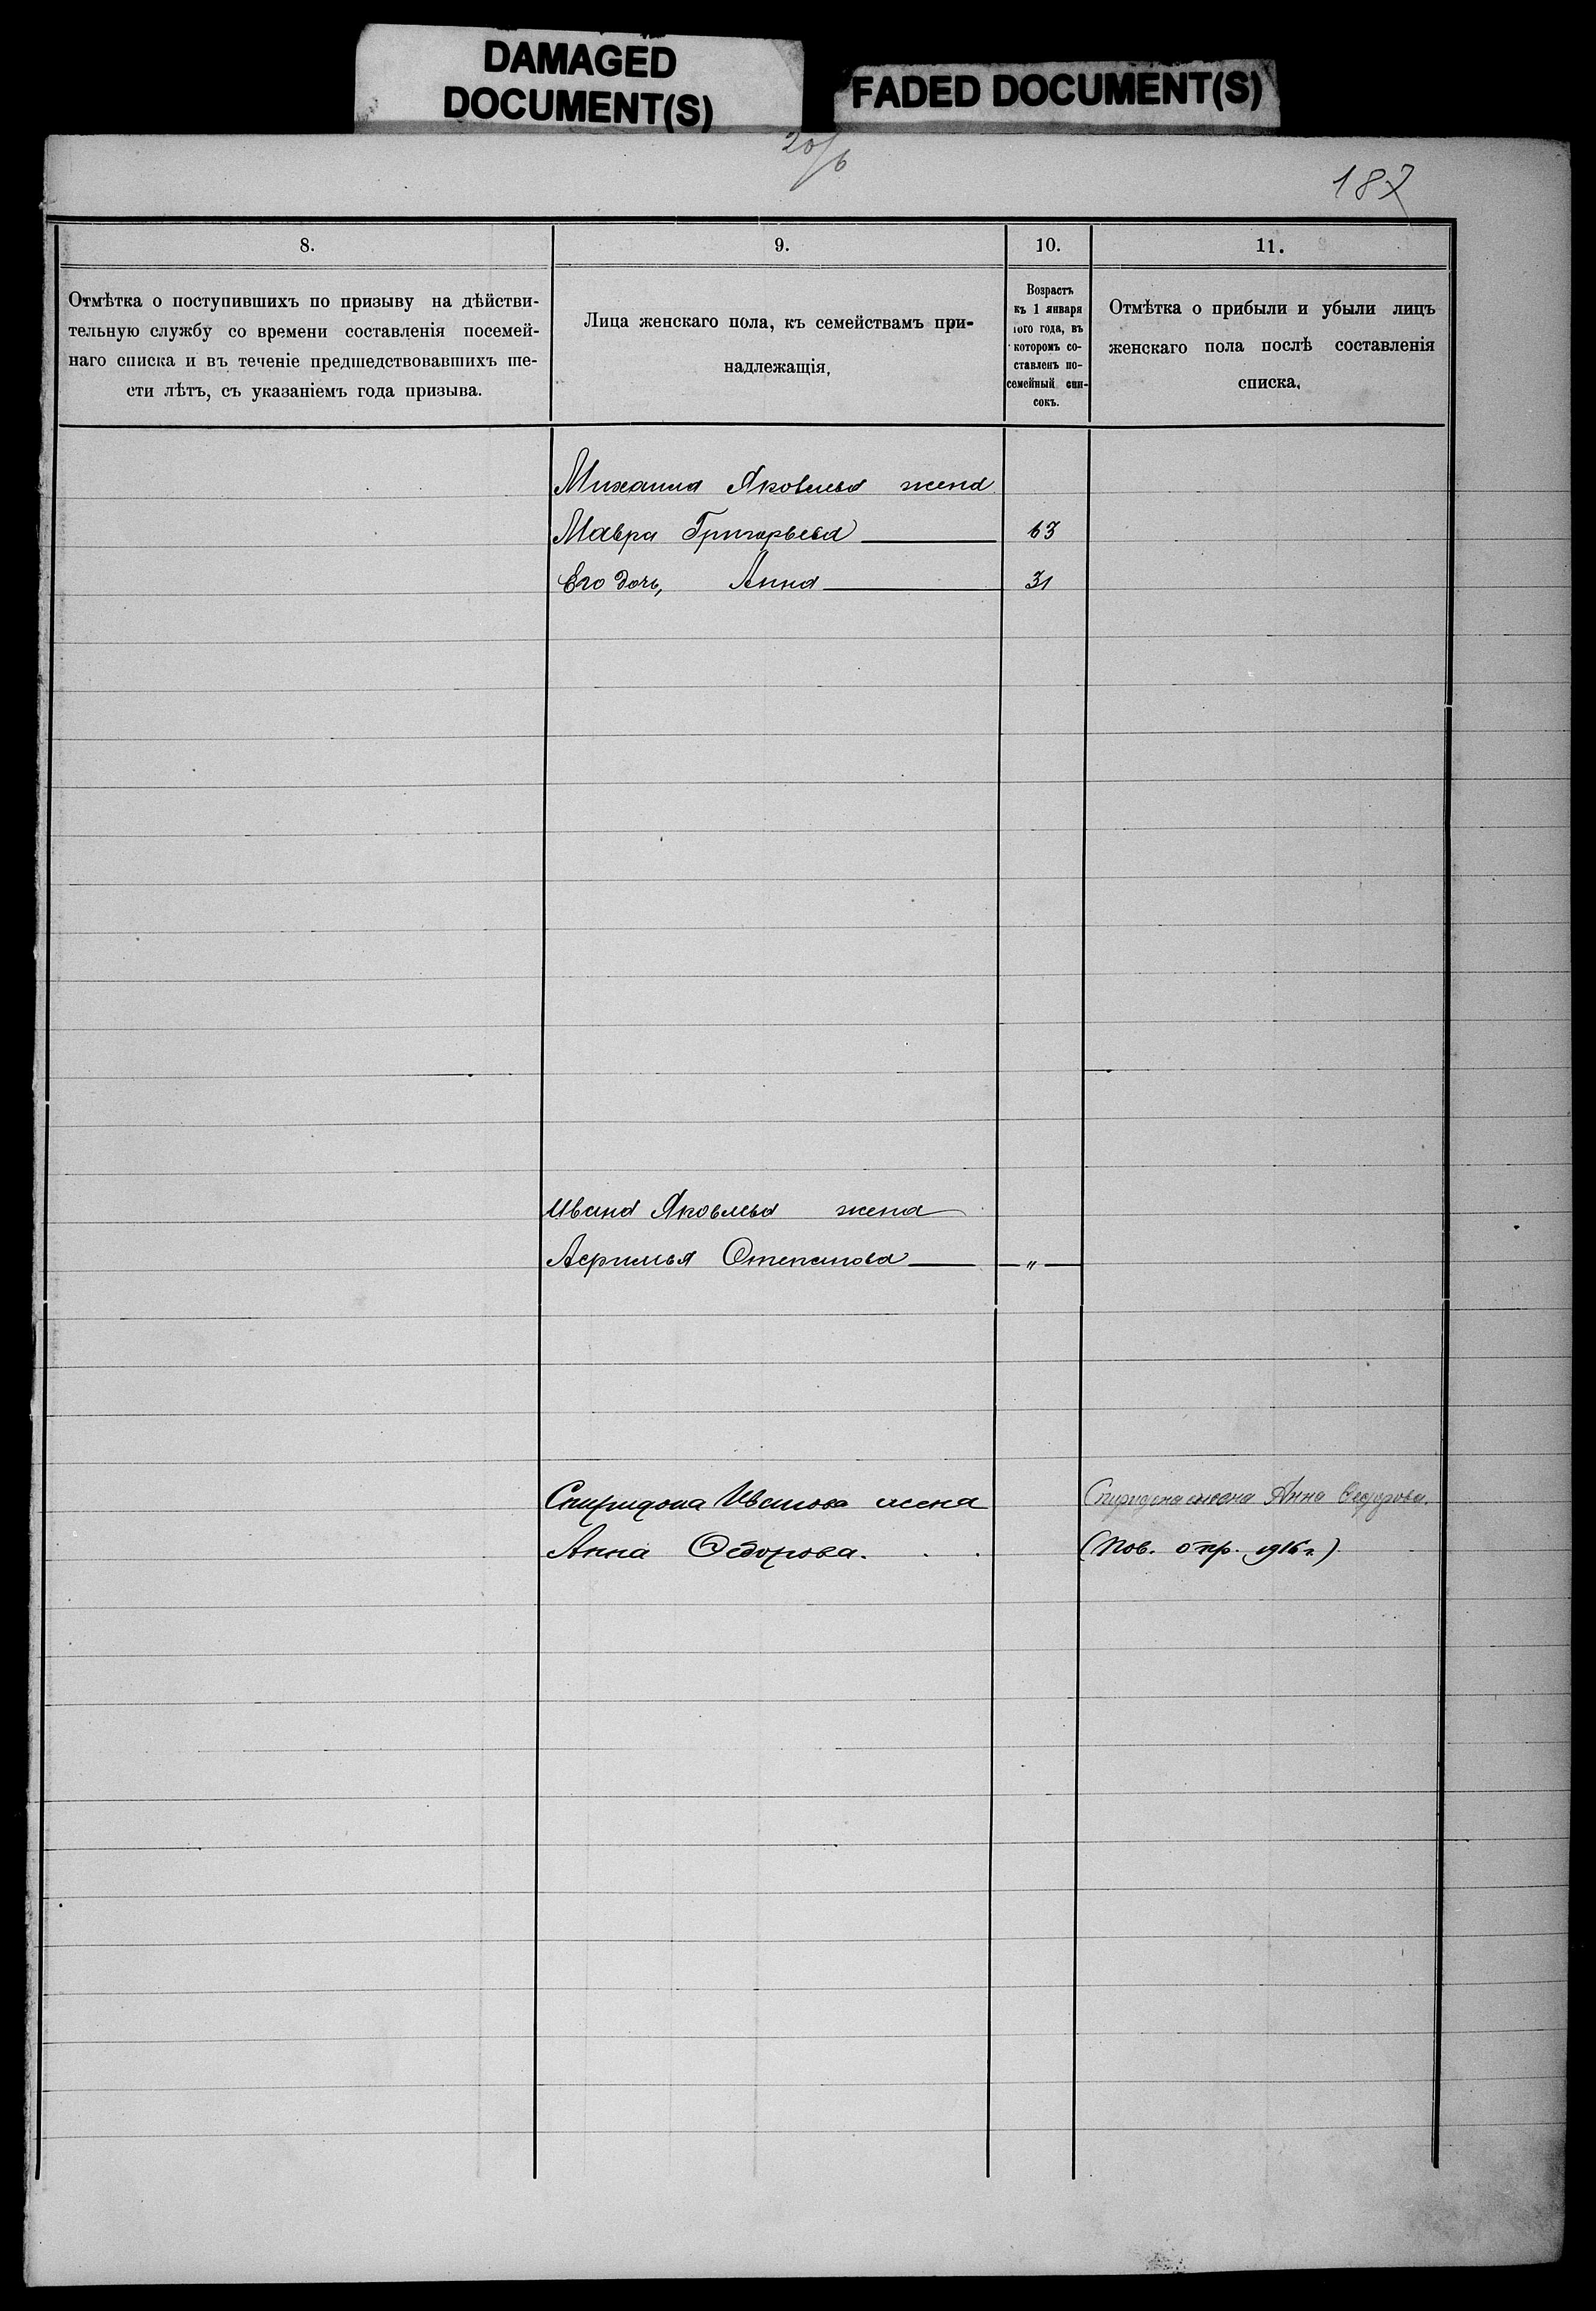 DAMAGED
DOCUMENT(S)
FADED DOCUMENT(S)
20/6
187
8.
9.
10.
11.
Отмѣтка о поступившихъ по призыву на дѣйстви-
тельную службу со времени составленія посемей-
наго списка и въ теченіе предшедствовавшихъ ше-
сти лѣтъ, съ указаніемъ года призыва.
Лица женскаго пола, къ семействамъ при-
надлежащія,
Возрастъ
къ 1 января
того года, въ
которомъ со-
ставленъ по-
семейный спи-
сокъ.
Отмѣтка о прибыли и убыли лицъ
женскаго пола послѣ составленія
списка.
Михаила Яковлева жена
Мавра Григорьева 63
Его дочь, Анна 31
Ивана Яковлева жена
Степанова "
Спиридона Иванова жена
Спиридона жена Анна Федорова.
Анна Ѳедорова.
(Пов. опр. 1916 г.)